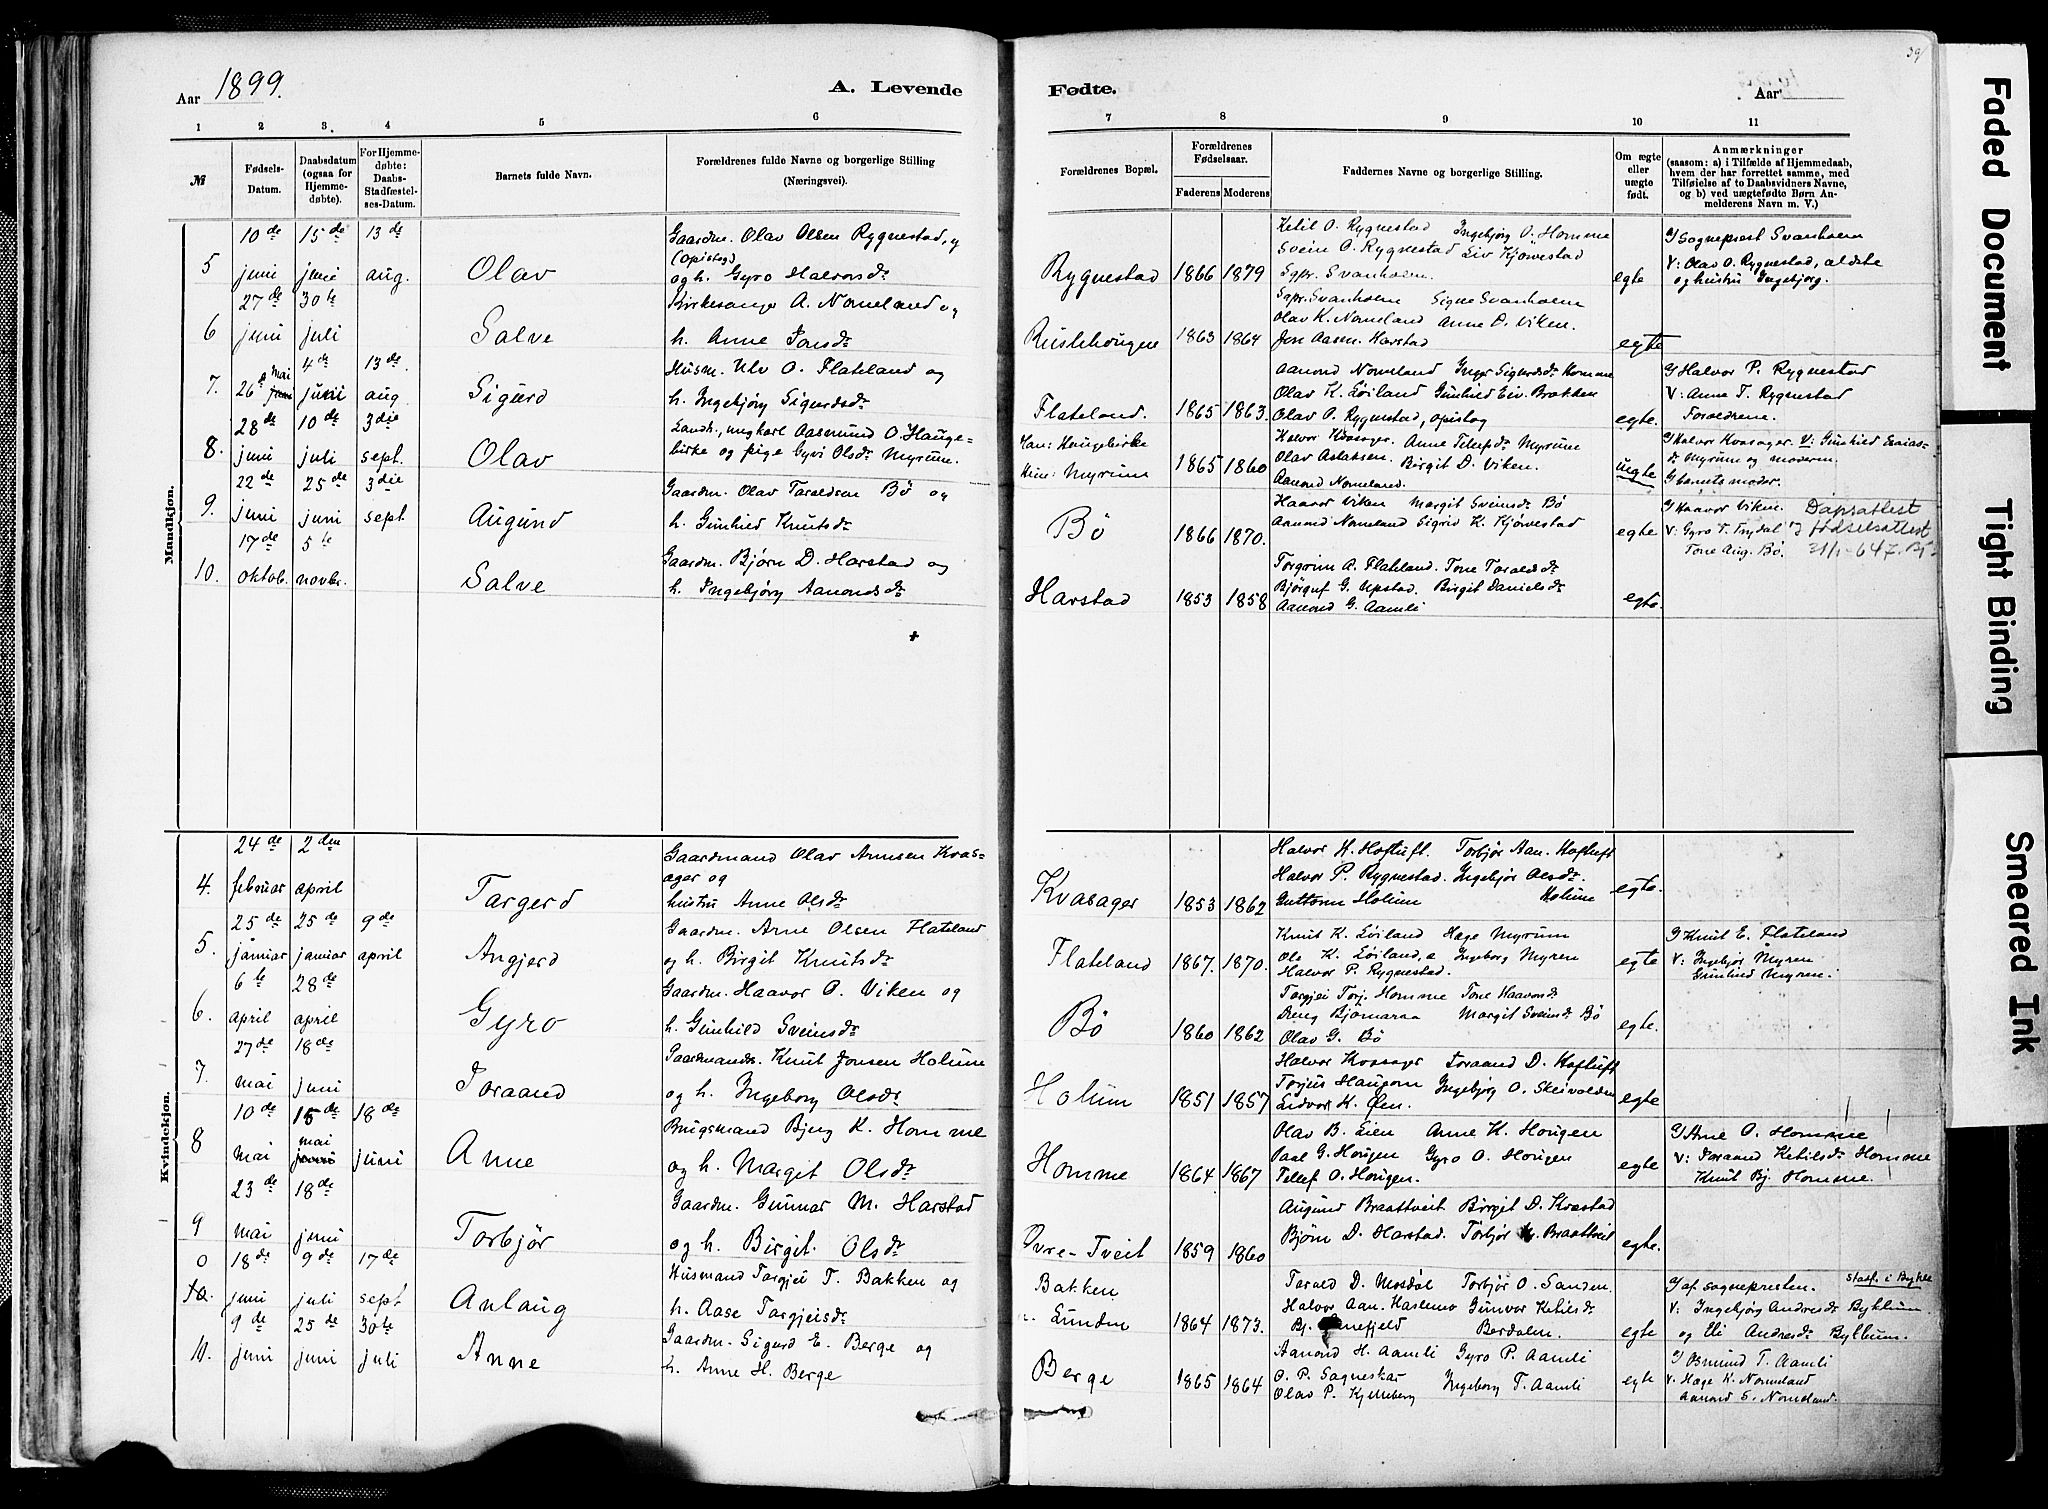 39
Aar 1899.
A. Levende
Fødte.
Aar
1 2 3. 4 5 6
7 8 9 10 11
№
Fødsels-Datum.
Daabsdatum (ogsaa for Hjemmedøbte).
For Hjemmedøbte: Daabs-Stadfæstelses-Datum.
Barnets fulde Navn.
Forældrenes fulde Navne og borgerlige Stilling (Næringsvei).
Forældrenes Bopæl.
Forældrenes Fødselsaar.
Faderens Moderens
Faddernes Navne og borgerlige Stilling.
Om ægte eller uægte født.
Anmærkninger
(saasom: a) i Tilfælde af Hjemmedaab, hvem der har forrettet samme, med Tilføielse af to Daabsvidners Navne, og b) ved uægtefødte Børn Anmelderens Navn m. V.)
Mandkjøn.
5 10de juni 15de juni 13de aug. Olav
Gaardm. Olav Olsen Rygnestad, y
(opistog)
og h. Gyro Halvorsdr
Rygnestad 1866 1879
Ketil O. Rygnestad Ingebjørg O. Homme
Svein O. Rygnestad Liv Kjørvestad
Sgpr. Svanholm.
egte
Sogneprest Svanholm
V: Olav O. Rygnestad, ældste
og hustru Ingebjørg.
6 27de juni 30te juli Salve
Kirkesanger A. Nomeland og
h. Anne Jonsdr
1863 1864
Sgpr. Svanholm Signe Svanholm
Olav K. Nomeland Anne D. Viken.
Jon Aasen Harstad
egte
7. 26de mai 4de juni 13de aug Sigurd
Husm. Ulv O. Flateland og
h. Ingebjørg Sigurdsdr
Flateland. 1865 1863.
Aanond Nomeland Inger Sigurdsdr Homme
Olav K. Løiland Gunhild Eiv. Brokken
Olav O. Rygnestad, opistog
egte.
Halvor P. Rygnestad
V: Anne T. Rygnestad
Foræeldrene.
8. 28de juni 10de juli 3die sept. Olav
Landh., ungkarl Aasmund O. Hauge-
birke og pige Gyvi Olsdr Myrum.
Han: Haugebirke
Hun: Myrum 1865 1860
Halvor Kvasager. Anne Tellefsdr Myrum
Olav Aslaksen. Birgit D. Viken.
Aanond Nomeland.
uegte
Halvor Kvasager. V: Gunhild Esaias-
dr Myrum og moderen
G barnets moder.
9. 22de juni 25de juni 3die sept. Augund
Gaardm. Olav Taraldsen Bø og
h. Gunhild Knutsdr
Bø 1866 1870.
Haavor Viken Margit Sveinsdr Bø
Aanond Nomeland Sigrid K. Kjørvestad
egte
Haavor Viken.
V: Gyro T. Trydal
Tone Aug. Bø.
Dåpsattest
fødselsattest
10. 17de oktob. 5te novbr. Salve
Gaardm. Bjørn D. Harstad og
h. Ingebjørg Aanondsdr
Harstad 1853 1858
Torgrim A. Flateland. Tone Taraldsdr
Bjørguf G. Upstad. Birgit Danielsdr
Aanond G. Aamli
egte.
Kvindekjøn.
4. 24de februar 2den april Targerd
Gaardmand Olav Arnnsen Kvas-
ager og
hustru Anne Olsdr
Kvasager 1853 1862
Halvor H. Hoftuft. Torbjør Aan. Hoftuft
Halvor P. Rygnestad. Ingebjør Olsdr.
Guttorm Holum Holum
egte.
5. 25de januar 25de januar 9de april Angjerd
Gaardm. Arne Olsen Flateland
og h. Birgit Knutsdr
Flateland 1867. 1870.
Knut K. Løiland Hæge Myrum
Ole K. Løiland, Ingeborg Myren
Halvor P. Rygnestad.
egte
Knut E. Flateland
V: Ingebjør Myren
Gunhild Myren.
6. 6te april 28de april Gyro
Gaardm. Haavor O. Viken og
h. Gunhild Sveinsdr
Bø 1860 1862
Targjei Torj. Homme Tone Haavorsdr
Dreng Bjørnaraa Margit Sveinsdr Bø
Olav G. Bø
egte.
7. 27de mai 18de juni Toraand
Gaardmands. Knut Jonsen Holum
og h. Ingeborg Olsdr
Holum 1851 1857
Halvor Kvasager Toraand D. Hoftuft
Torjus Haugom Ingebjørg O. Skeivolden
Eidvor K. Øen.
egte
8 10de mai 15de mai 18de juni Anne
Brugsmand Bjug K. Homme
og h. Margit Olsdr
Homme 1864 1867
Olav B. Lien Anne K. Hougen
Paal G. Hougen Gyro O. Hougen
Tellef O. Hougen.
egte
Arne O. Homme
V: Toraand Ketilsdr Homme
Knut Bj. Homme.
9 23de mai 18de juni Torbjør
Gaardm. Gunnar M. Harstad
og h. Birgit Olsdr
Øvre-Tveit 1859 1860
Augund Braattveit Birgit D. Harstad
Bjørn D. Harstad. Torbjør Braattveit
egte.
10. 18de juni 9de juli 17de sept Anlaug
Husmand Targjei T. Bakken og
h. Aase Targjeisdr
Bakken
" Lunden 1864 1873.
Tarald D. Mosdøl Torbjør O. Sanden
Halvor Aan. Haslemo Gunvor Ketilsdr
Bj. Berdalen.
egte
af sognepresten. stadf. i Bykle
V: Ingebjørg Andresdr Byklum
og Eli Andresdr Byklum.
11. 9de juni 25de juni 30te juli Anne
Gaardm. Sigurd E. Berge og
h. Anne H. Berge
Berge 1865 1864
Aanond H. Aamli Gyro P. Aamli
O. P. Sagneskar Ingeborg T. Aamli
Olav P. Kylleberg
egte
Osmund T. Aamli
V. Hæge K. Nomeland
Aanond S. Nomeland.
Faded Document
Tight Binding
Smeared Ink